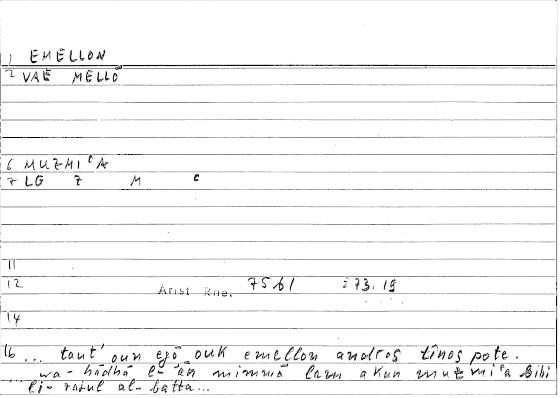 1 EMELLON
2 VAE MELLŌ
6 MUZMIʿA
7 LG Z M ʿ
11
12 Arist Rhe. 75 61 : 73, 19
14
16 ... taut' oun egō ouk emellon andros tinos pote.
wa-hādhā l-ān mimmā lam akun muzmiʿa Bihi
li-rajul al-batta...